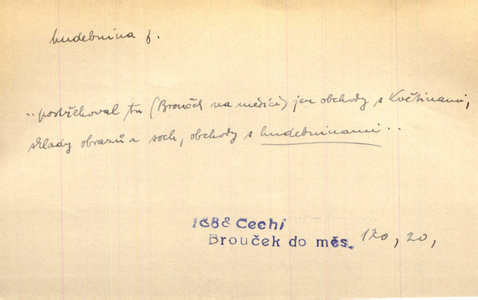 hudebnina f.
..postřehoval tu (Brouček na měsíci) jen obchody s květinami,
sklady obrazů a soch, obchody s hudebninami..
1888 Čechí
Brouček do měs. 120, 20,